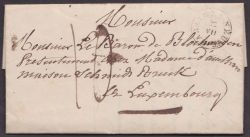 Monsieur
Monsieur Le Baron de Blochausen
Presentement chez Madame
maison Schmidt Bruck
Luxembourg